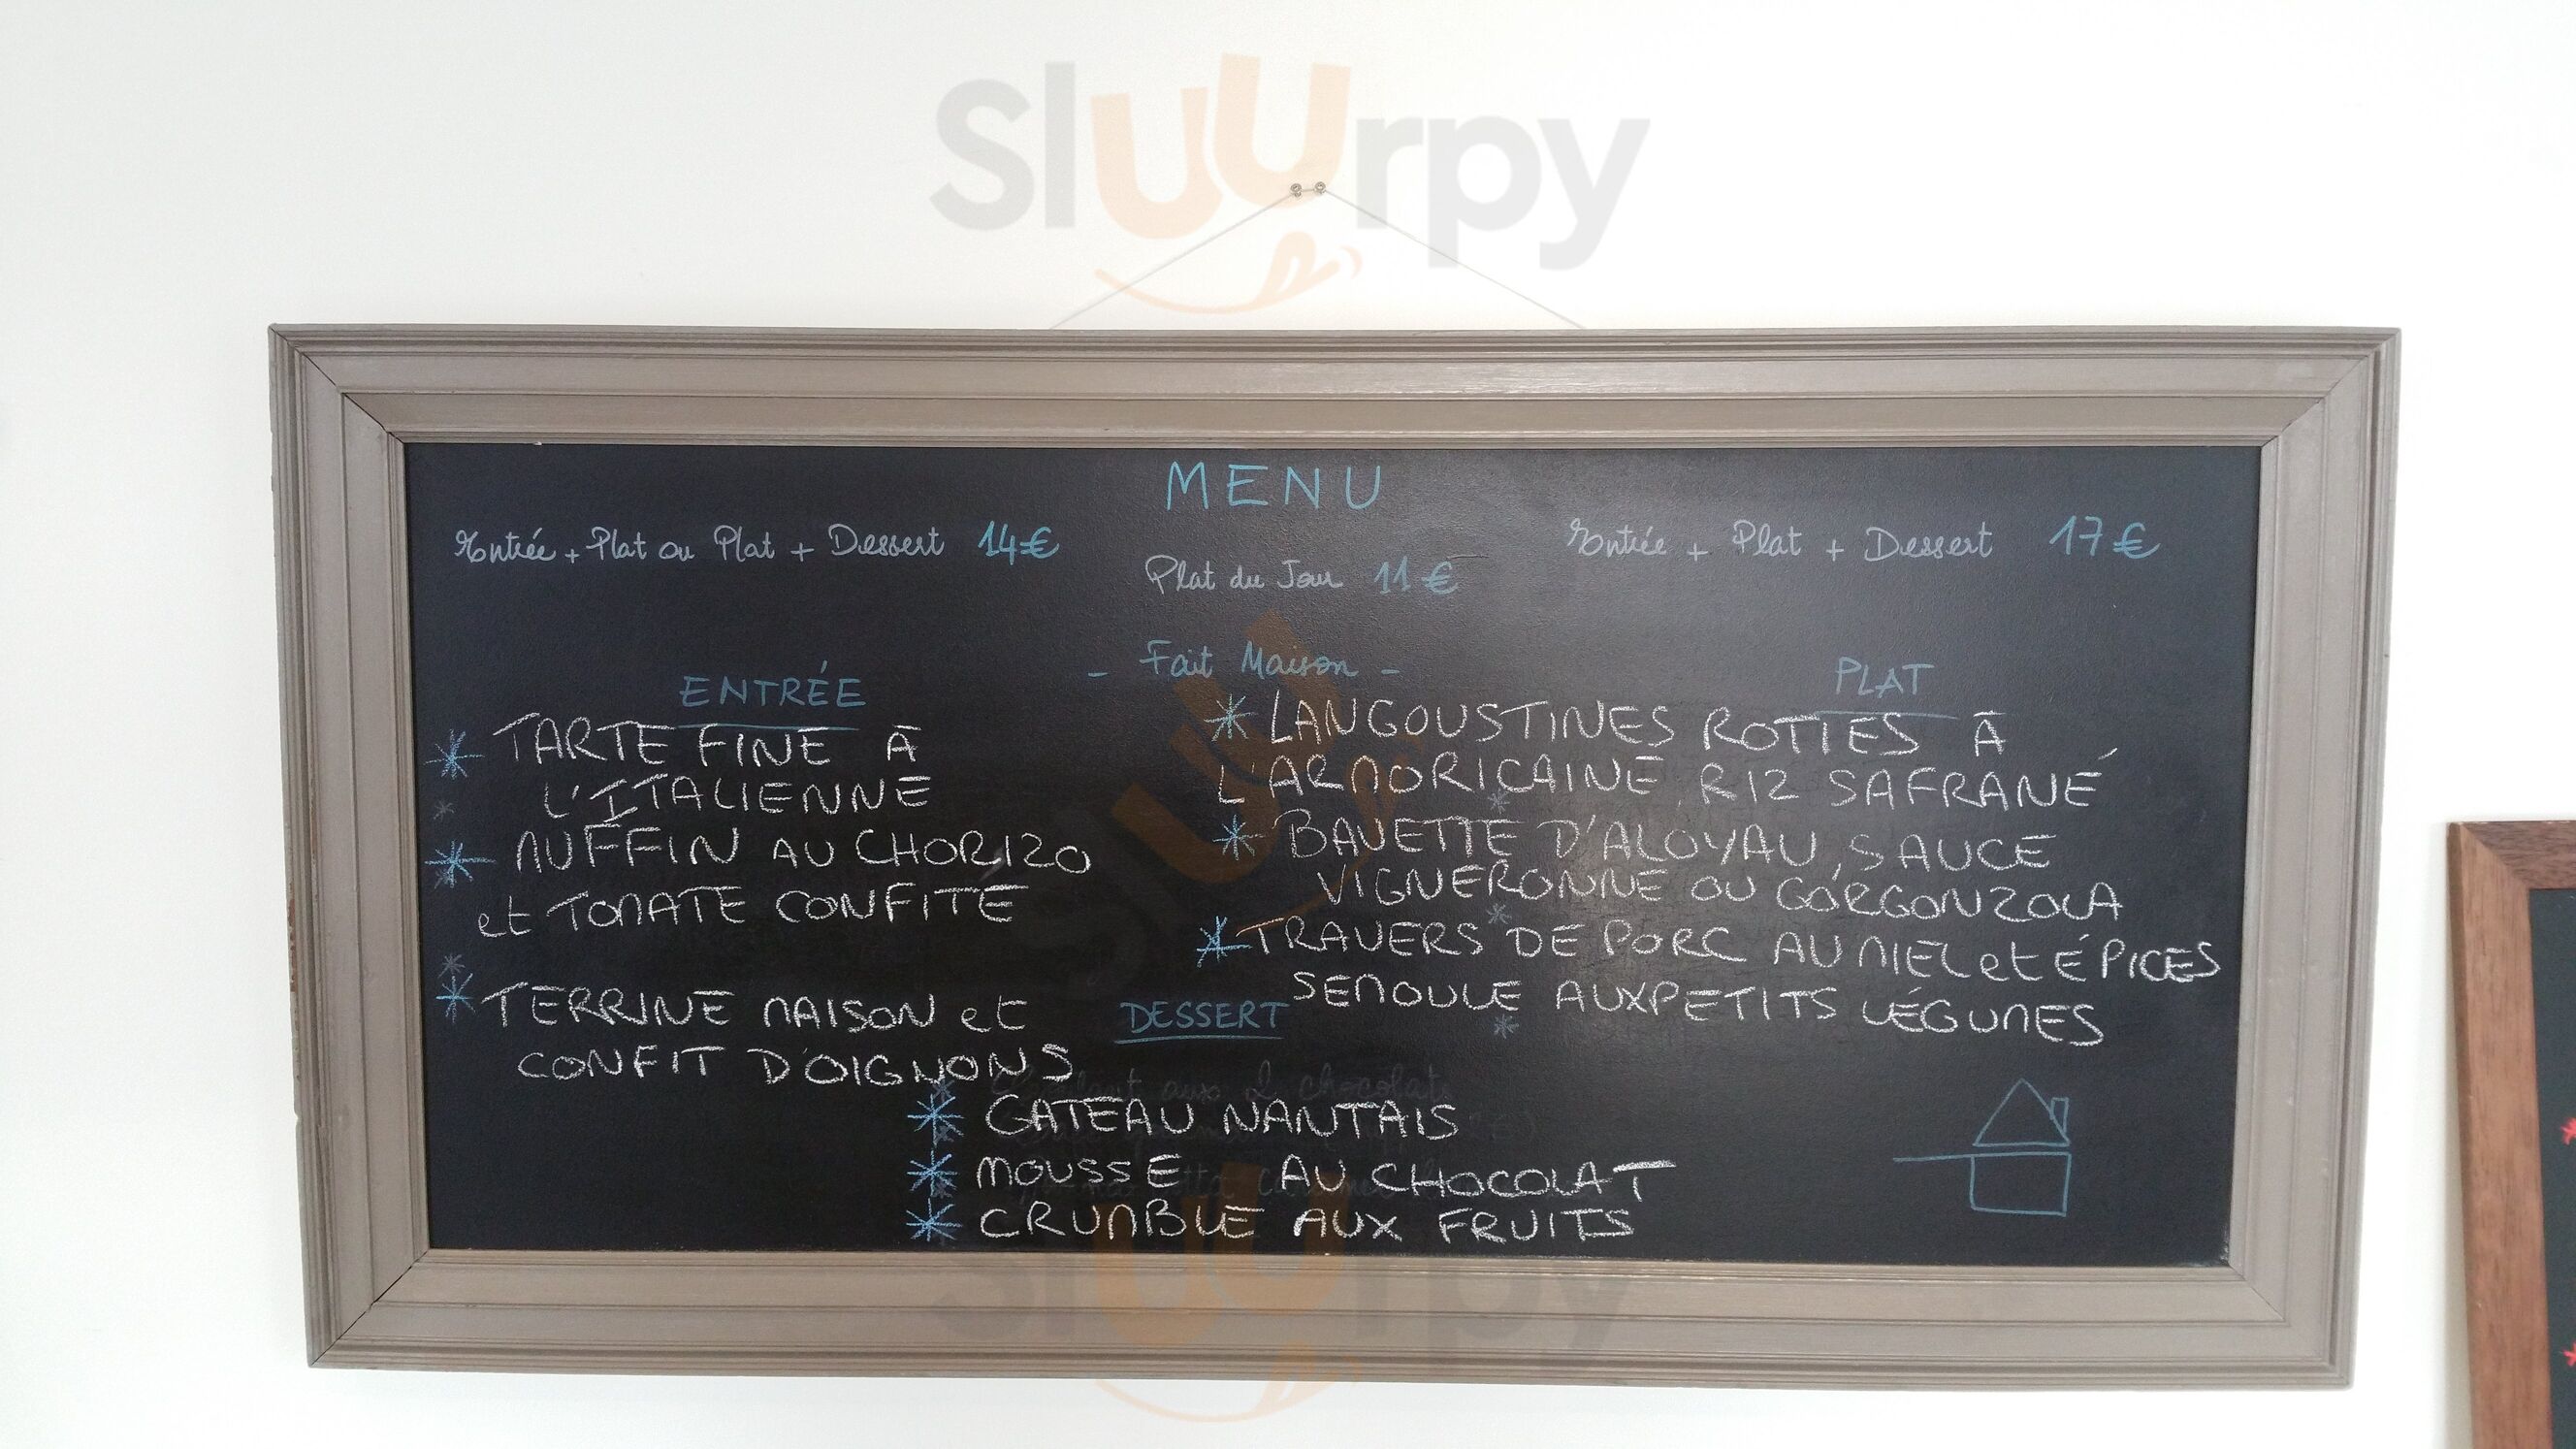 Sluurpy
MENU
Entrée + Plat ou Plat + Dessert 14€
Entrée + Plat + Dessert 17€
Plat du Jour 11€
- Fait Maison -
ENTRÉE
* TARTE FINE À
L'ITALIENNE
* MUFFIN AU CHORIZO
et TOMATE CONFITE
* TERRINE MAISON et
CONFIT D'OIGNONS
PLAT
* LANGOUSTINES ROTIES À
L'ARMORICAINE, RIZ SAFRANÉ
* BAVETTE D'ALOYAU, SAUCE
VIGNERONNE OU GORGONZOLA
* TRAVERS DE PORC AU MIEL et ÉPICES
SEMOULE AUX PETITS LÉGUMES
DESSERT
* GATEAU NANTAIS
* MOUSSE AU CHOCOLAT
* CRUMBLE AUX FRUITS
Sluurpy